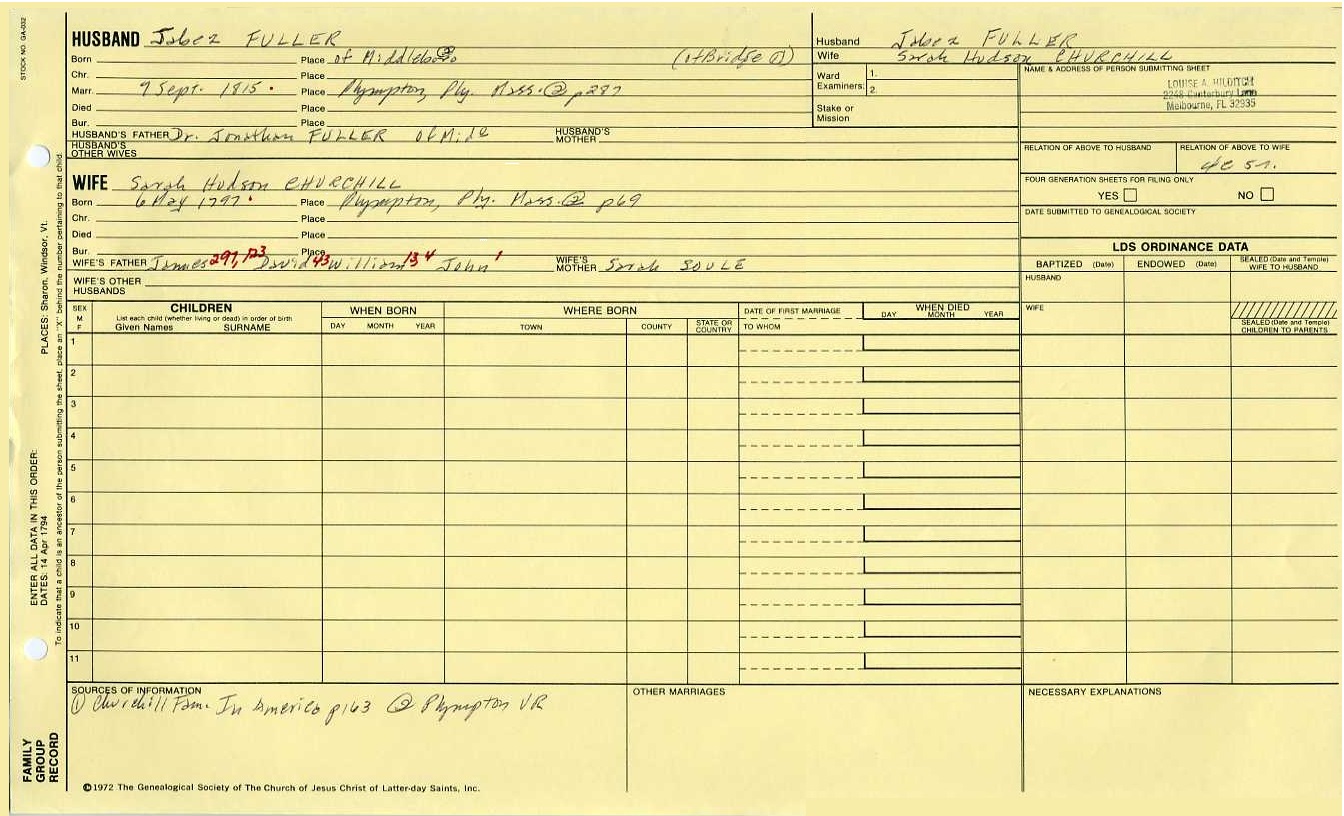 STOCK NO. GA-032
HUSBAND Jabez FULLER
Born Place of Middleboro② (of Bridge ①)
Chr. Place
Marr. 9 Sept. 1815 • Place Plympton, Ply. Mass. ② p287
Died Place
Bur. Place
HUSBAND'S FATHER Dr. Jonathan FULLER of Mid HUSBAND'S MOTHER
HUSBAND'S OTHER WIVES
WIFE Sarah Hudson CHURCHILL
Born 6 May 1797 • Place Plympton, Ply. Mass. ② p69
Chr. Place
Died Place
Bur. Place
WIFE'S FATHER James 297, 123 David 43 William 13 4 John 1 WIFE'S MOTHER Sarah SOULE
WIFE'S OTHER HUSBANDS
Husband Jabez FULLER
Wife Sarah Hudson CHURCHILL
Ward Examiners: 1.
2.
Stake or Mission
NAME & ADDRESS OF PERSON SUBMITTING SHEET
LOUISE A. HILDITCH
2248 Canterbury Lane
Melbourne, FL 32935
RELATION OF ABOVE TO HUSBAND RELATION OF ABOVE TO WIFE
4C 5r.
FOUR GENERATION SHEETS FOR FILING ONLY
YES NO
DATE SUBMITTED TO GENEALOGICAL SOCIETY
LDS ORDINANCE DATA
BAPTIZED (Date) ENDOWED (Date) SEALED (Date and Temple) WIFE TO HUSBAND
HUSBAND
WIFE
SEALED (Date and Temple) CHILDREN TO PARENTS
SEX M F
CHILDREN
List each child (whether living or dead) in order of birth
Given Names SURNAME
WHEN BORN
DAY MONTH YEAR
WHERE BORN
TOWN COUNTY STATE OR COUNTRY
DATE OF FIRST MARRIAGE
TO WHOM
WHEN DIED
DAY MONTH YEAR
1
2
3
4
5
6
7
8
9
10
11
SOURCES OF INFORMATION
① Churchill Fam. In America p163 ② Plympton VR
OTHER MARRIAGES
NECESSARY EXPLANATIONS
©1972 The Genealogical Society of The Church of Jesus Christ of Latter-day Saints, Inc.
FAMILY GROUP RECORD
ENTER ALL DATA IN THIS ORDER:
DATES: 14 Apr 1794
PLACES: Sharon, Windsor, Vt.
To indicate that a child is an ancestor of the person submitting the sheet, place an "X" behind the number pertaining to that child.